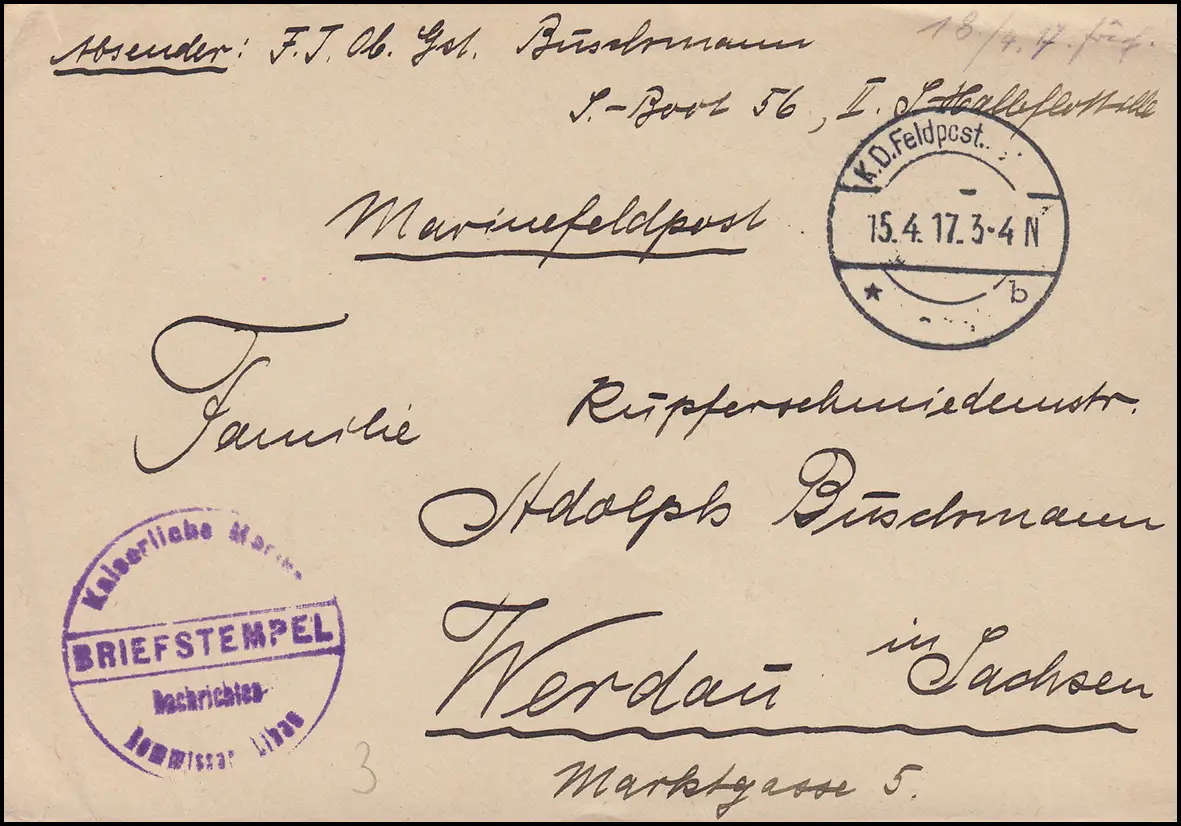 Absender: F. T. Ob. Gst. Buschmann
S.-Boot 56, II. S-Halbflottille
18./4.17.
K.D.Feldpost.
15.4.17.3-4 N
* b
Marinefeldpost
Familie
Kupferschmiedemstr.
Adolph Buschmann
Werdau in Sachsen
Marktgasse 5.
Kaiserliche Marine
BRIEFSTEMPEL
Nachrichten-
Kommissar Libau
3